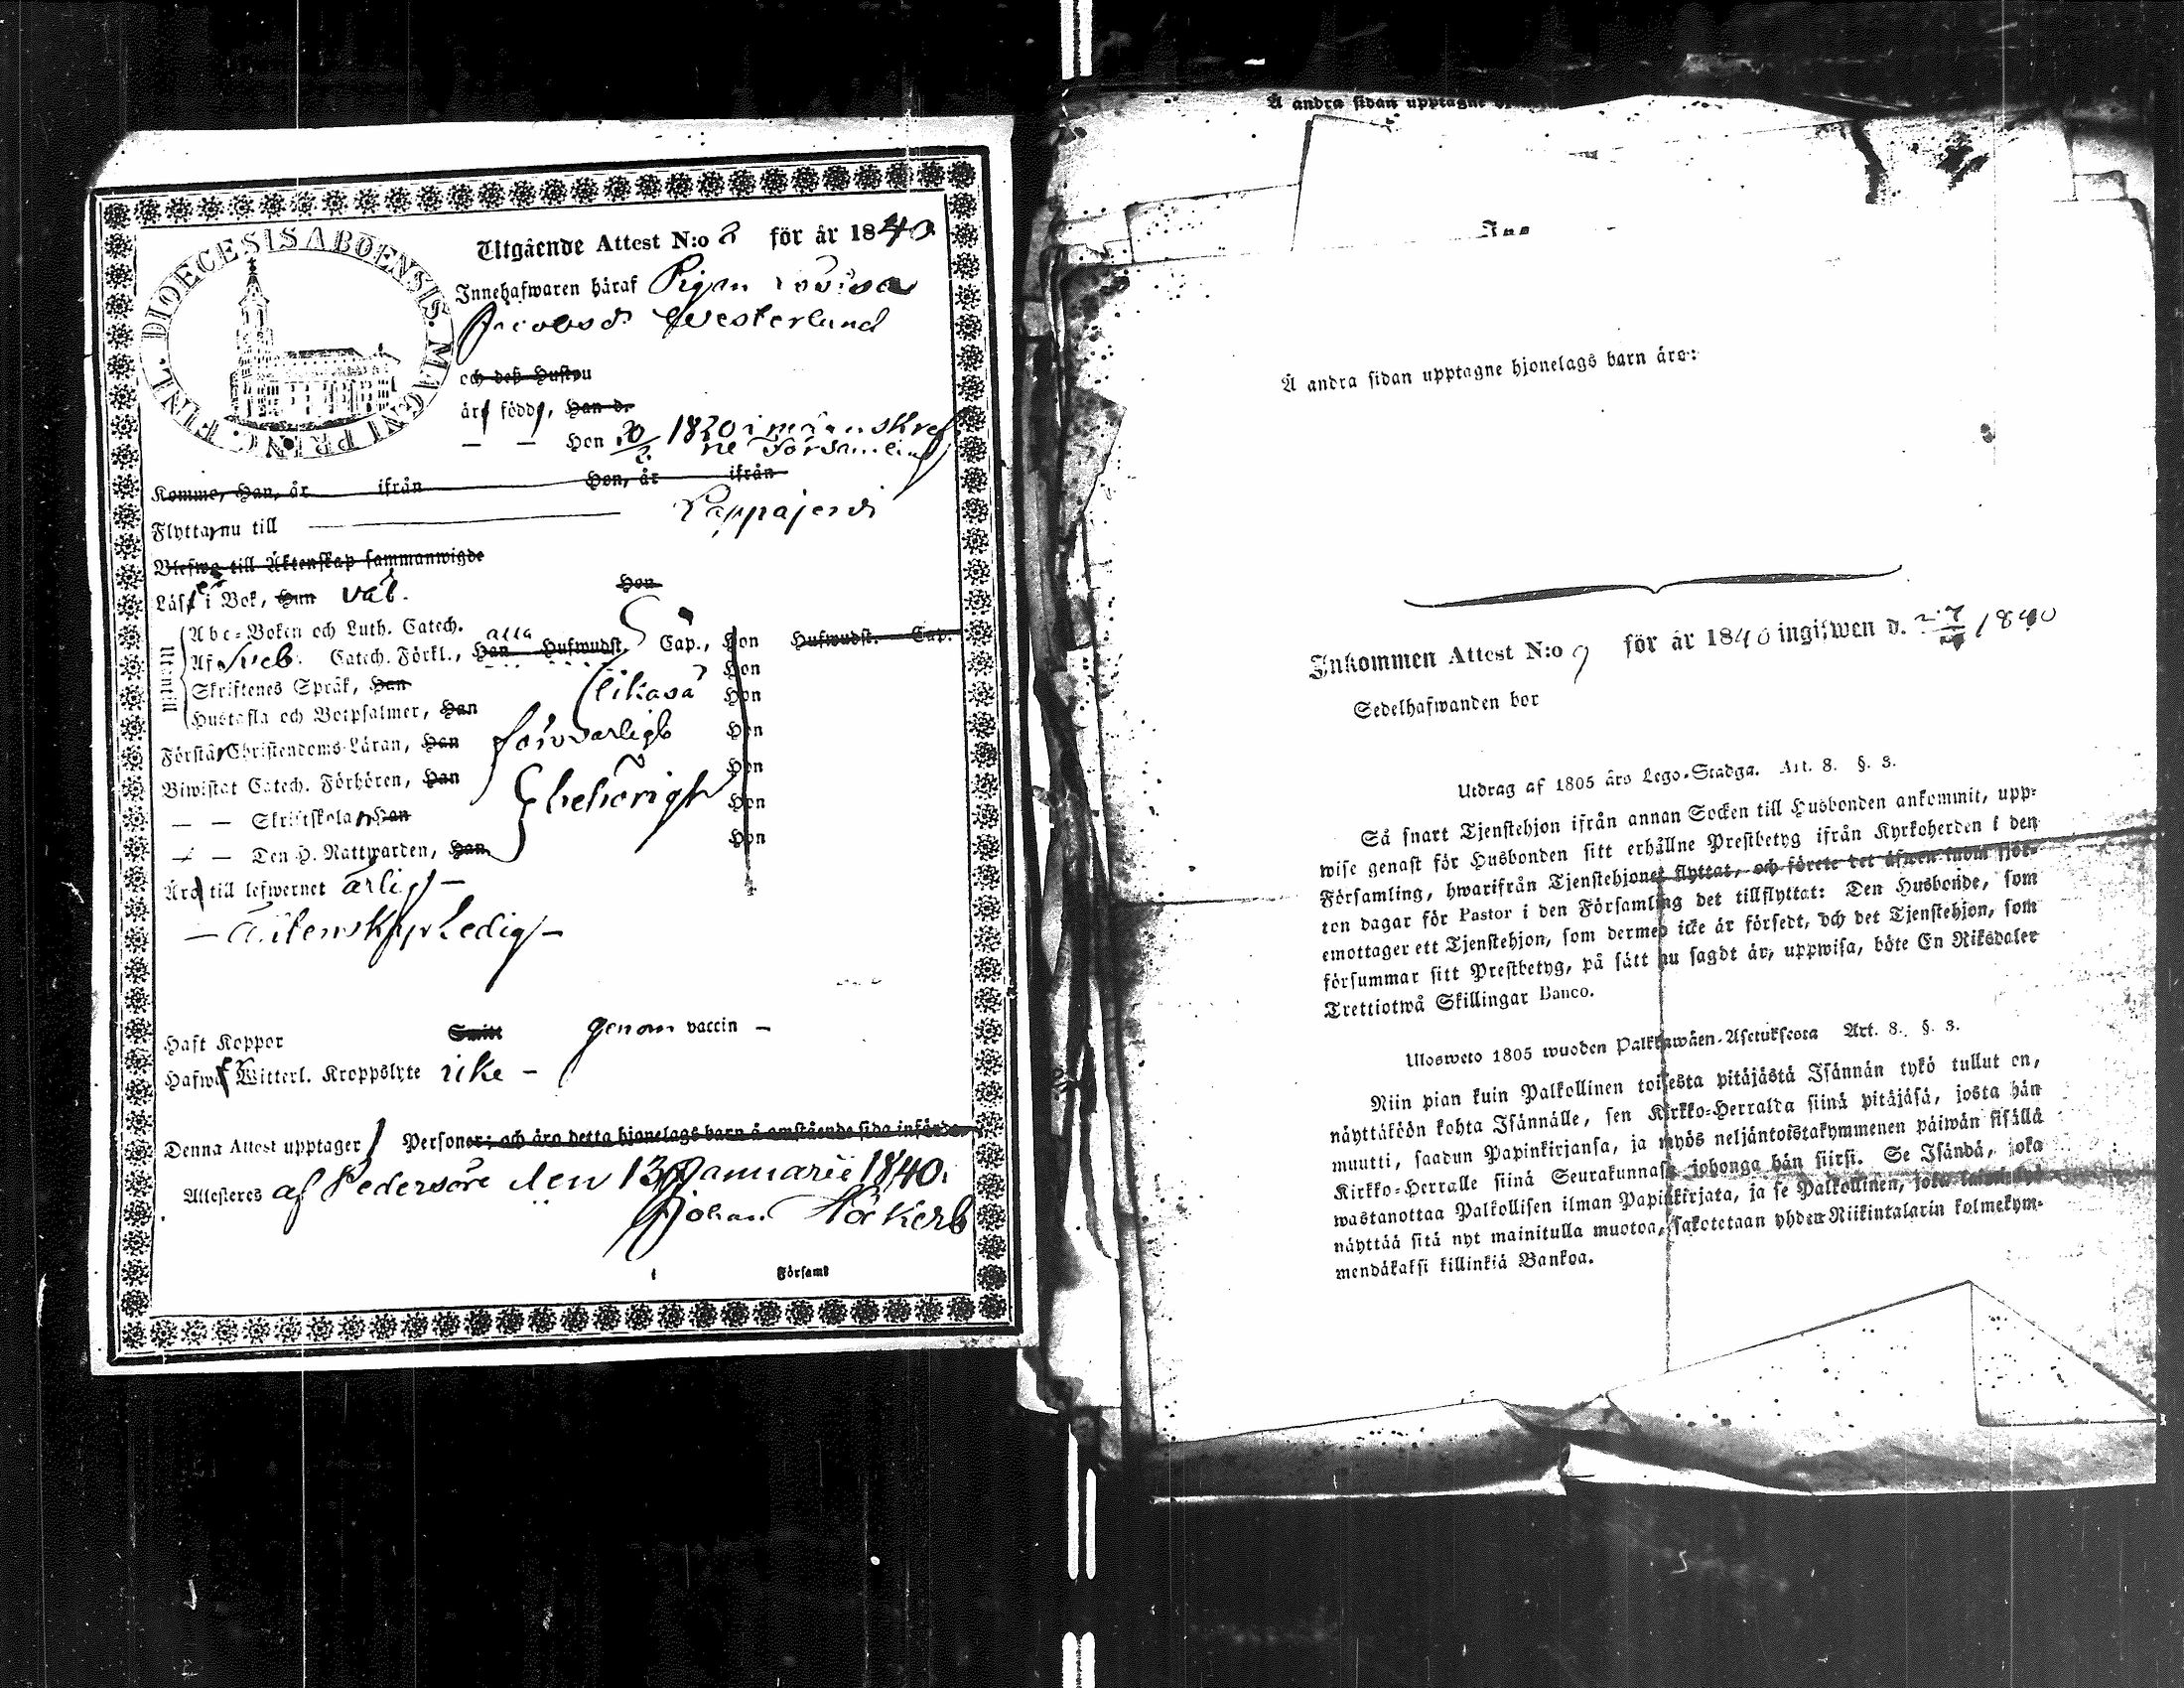 DIOECESIS ABOENSIS. MAGNI PRINC. FINL.
Utgående Attest N:o 2 för år 1840
Innehafwaren häraf Pigan Lovisa
Jacobsdr Westerlund
och deß Hustru
är född, Han d.
— — Hon 20/2 1820 i
ne Församling
Komme, Han, år ifrån Hon, år ifrån
Flyttar nu till Lappajervi
Blefwo till Äktenskap sammanwigde
Läser i Bok, Han väl. Hon
Utantill
Abc-Boken och Luth. Catech.
Af Sveb. Catech. Förkl., Han alla Hufwudst. Cap., Hon Hufwudst. Cap.
Skriftenes Språk, Han Hon
Hustafla och Botpsalmer, Han likaså Hon
Förstår Christendoms-Läran, Han försvarligt Hon
Biwistat Catech. Förhören, Han behörigt Hon
— — Skriftskolan, Han Hon
— — Den H. Nattwarden, Han Hon
Äro till lefwernet ärlig —
— Äktenskaps Ledig —
Haft Koppor Smitt genom vaccin —
Hafwa Witterl. Kroppslyte icke —
Denna Attest upptager 1 Personer; och äro detta hjonelags barn å omstående sida införde.
Attesteras af Pedersöre den 13 Januarii 1840.
Johan Hökerb
i Församl
Å andra sidan upptagne
Å andra sidan upptagne hjonelags barn äro:
Inkommen Attest N:o 9 för år 1840 ingifwen d. 1840
Sedelhafwanden bor
Utdrag af 1805 års Lego-Stadga. Art. 8. §. 3.
Så snart Tjenstehjon ifrån annan Socken till Husbonden ankommit, upp-
wise genast för Husbonden sitt erhållne Prestbetyg ifrån Kyrkoherden i den
Församling, hwarifrån Tjenstehjonet flyttat, och förete det äfwen inom fjor-
ton dagar för Pastor i den Församling det tillflyttat: Den Husbonde, som
emottager ett Tjenstehjon, som dermed icke är försedt, och det Tjenstehjon, som
försummar sitt Prestbetyg, på sätt nu sagdt är, uppwisa, böte En Riksdaler
Trettiotwå Skillingar Banco.
Ulosweto 1805 wuoden Palkkawäen-Asetuksesta Art. 8. §. 3.
Niin pian kuin Palkollinen toisesta pitäjästä Isännän tykö tullut on,
näyttäköön kohta Isännälle, sen Kirkko-Herralda siinä pitäjäsä, josta hän
muutti, saadun Papinkirjansa, ja myös neljäntoistakymmenen päiwän sisällä
Kirkko-Herralle siinä Seurakunnasa johonga hän siirsi. Se Isändä, joka
wastanottaa Palkollisen ilman Papinkirjata, ja se Palkollinen, joka
näyttää sitä nyt mainitulla muotoa, sakotetaan yhden Riikintalarin kolmekym-
mendäkaksi killinkiä Bankoa.